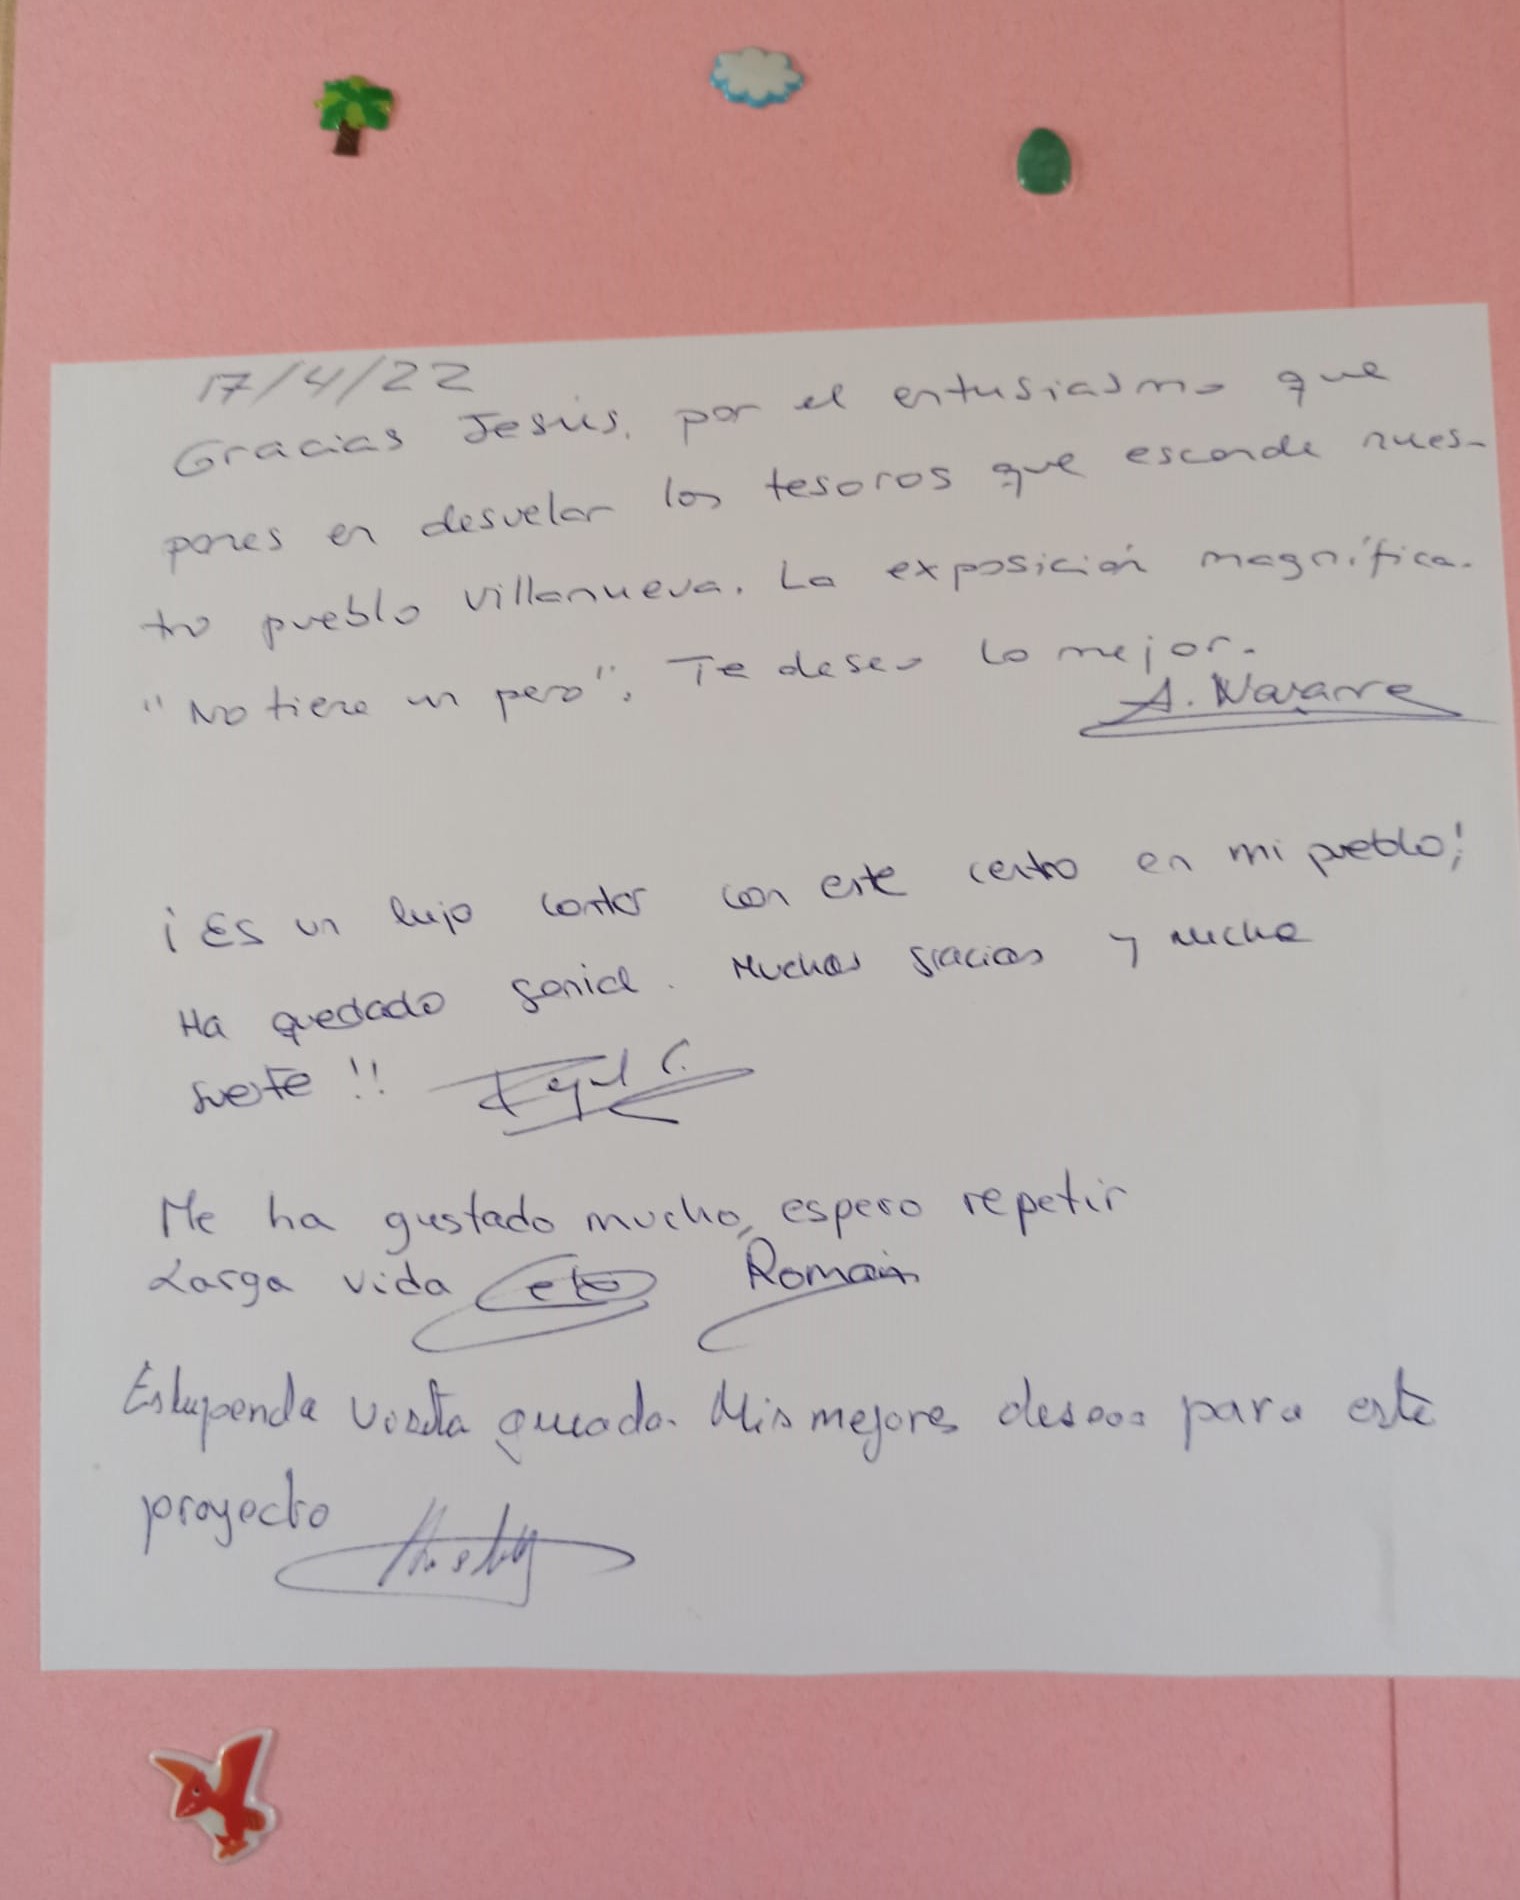 17/4/22
Gracias Jesús, por el entusiasmo que
pones en desvelar los tesoros que esconde nues-
tro pueblo Villanueva. La exposición magnífica.
"No tiene un pero". Te deseo lo mejor.
A. Navarre
¡Es un lujo contar con este centro en mi pueblo!
Ha quedado genial. Muchas gracias y mucha
suerte!!
Me ha gustado mucho, espero repetir
Larga vida Romain
Estupenda visita guiada. Mis mejores deseos para este
proyecto